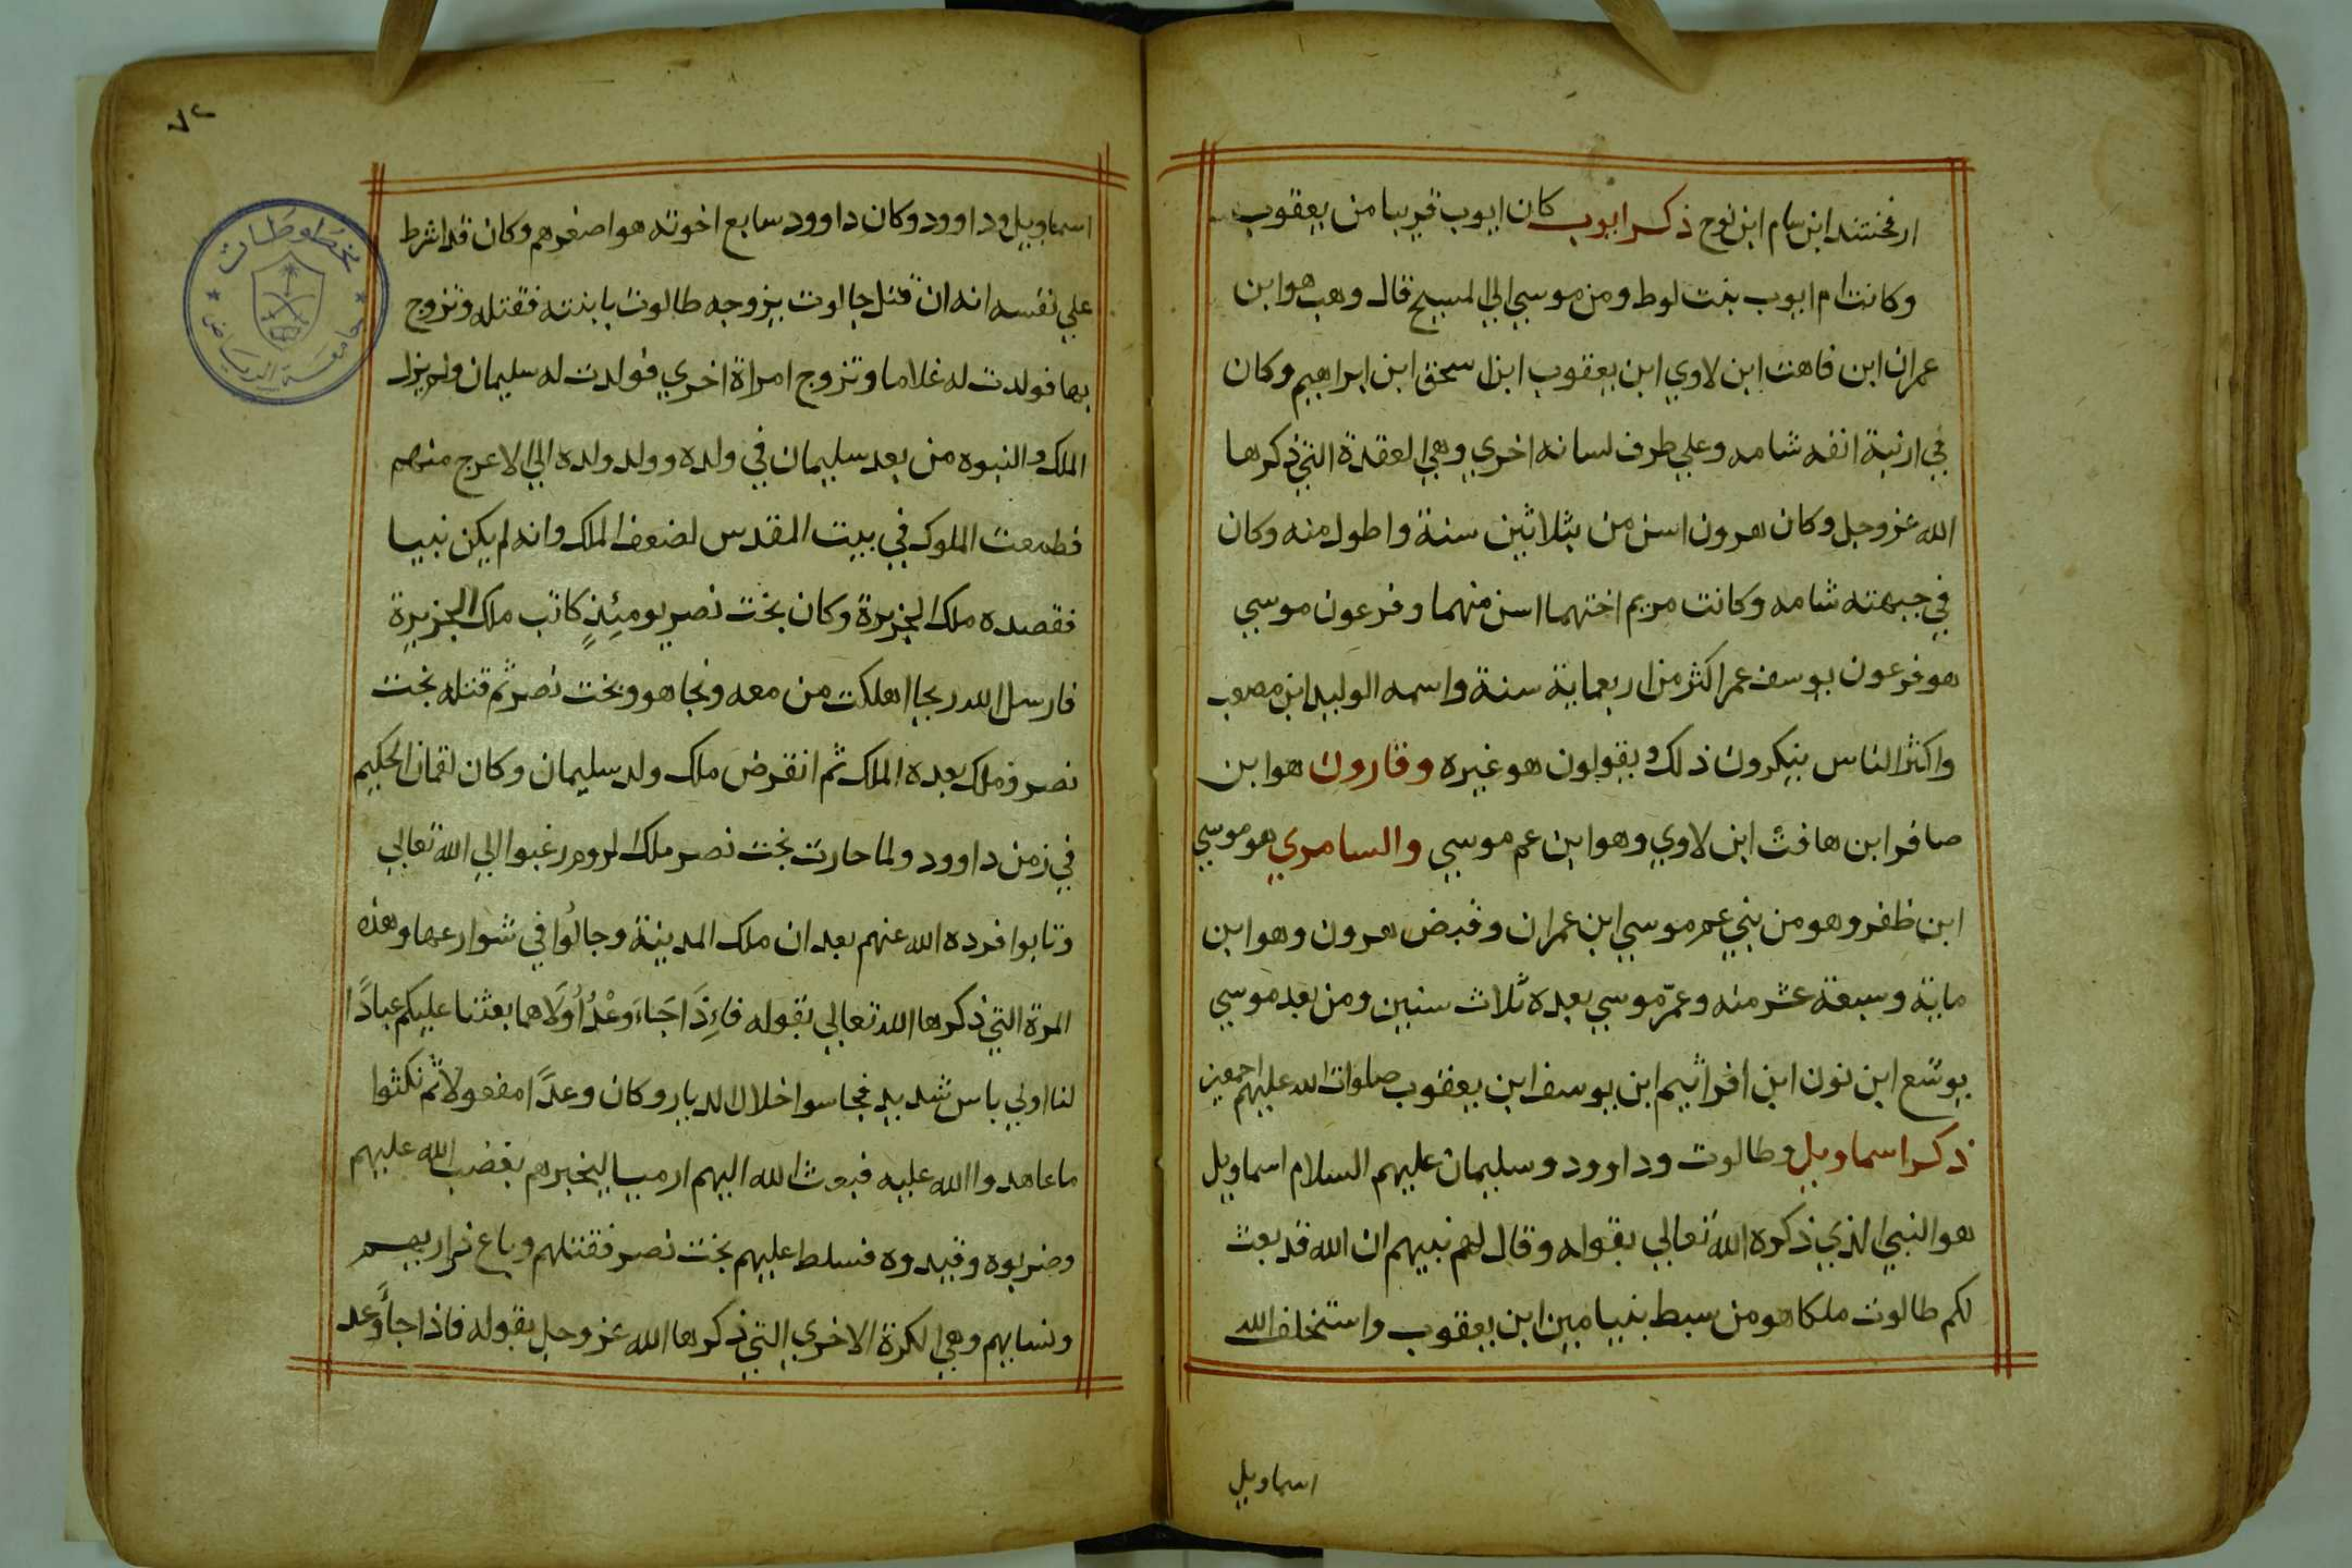 ارفخشند ابن سام ابن نوح ذكر ايوب كان ايوب قريبا من يعقوب
وكانت ام ايوب بنت لوط ومن موسي الي المسيح قال وهب هو ابن
عمران ابن قاهت ابن لاوي ابن يعقوب ابن اسحق ابن ابراهيم وكان
في ارنبة انفه شامه وعلي طرف لسانه اخري وهي العقدة التي ذكرها
الله عز وجل وكان هرون اسن من بثلاثين سنة واطول منه وكان
في جبهته شامه وكانت مريم اختهما اسن منهما وفرعون موسي
هو فرعون يوسف عمر اكثر من اربعماية سنة واسمه الوليد ابن مصعب
واكثر الناس ينكرون ذلك ويقولون هو غيره وقارون هو ابن
صافر ابن هافث ابن لاوي وهو ابن عم موسي والسامري هو موسي
ابن ظفر وهو من بني عم موسي ابن عمران وقبض هرون وهو ابن
ماية وسبعة عشر منه وعمّر موسي بعده ثلاث سنين ومن بعد موسي
يوشع ابن نون ابن افراثيم ابن يوسف ابن يعقوب صلوات الله عليهم اجمعين
ذكر اسماويل وطالوت وداوود وسليمان عليهم السلام اسماويل
هو النبي الذي ذكره الله تعالي بقوله وقال لهم نبيهم ان الله قد بعث
لكم طالوت ملكا هو من سبط بنيامين ابن يعقوب واستخلف الله
اسماويل
٧٢
اسماويل وداوود وكان داوود سابع اخوته هو اصغرهم وكان قد اشرط
علي نفسه انه ان قتل جالوت يزوجه طالوت بابنته فقتله وتزوج
بها فولدت له غلاما وتزوج امراة اخري فولدت له سليمان ولم يزل
الملك والنبوه من بعد سليمان في ولده وولد ولده الي الاعرج منهم
فطمعت الملوك في بيت المقدس لضعف الملك وانه لم يكن نبيا
فقصده ملك الجزيرة وكان بخت نصر يومئذٍ كاتب ملك الجزيرة
فارسل الله ريحا اهلكت من معه ونجا هو وبخت نصر ثم قتله بخت
نصر وملك بعده الملك ثم انقرض ملك ولد سليمان وكان لقمان الحكيم
في زمن داوود ولما حارت بخت نصر ملك الروم رغبوا الي الله تعالي
وتابوا فرده الله عنهم بعد ان ملك المدينة وجالوا في شوارعها وهذه
المرة التي ذكرها الله تعالي بقوله فاءِذَا جَاءَ وَعْدُ أُولَاهما بعثنا عليكم عبادًا
لنا اولي باس شديد فجاسوا خلال الديار وكان وعدًا مفعولا ثم نكثوا
ما عاهدوا الله عليه فبعث الله اليهم ارميا ليخبرهم بغضب الله عليهم
وضربوه وقيدوه فسلط عليهم بخت نصر فقتلهم وباع ذراريهم
ونسايهم وهي الكرة الاخري التي ذكرها الله عز وجل بقوله فاذا جأ وعد
مخطوطات
جامعة الرياض